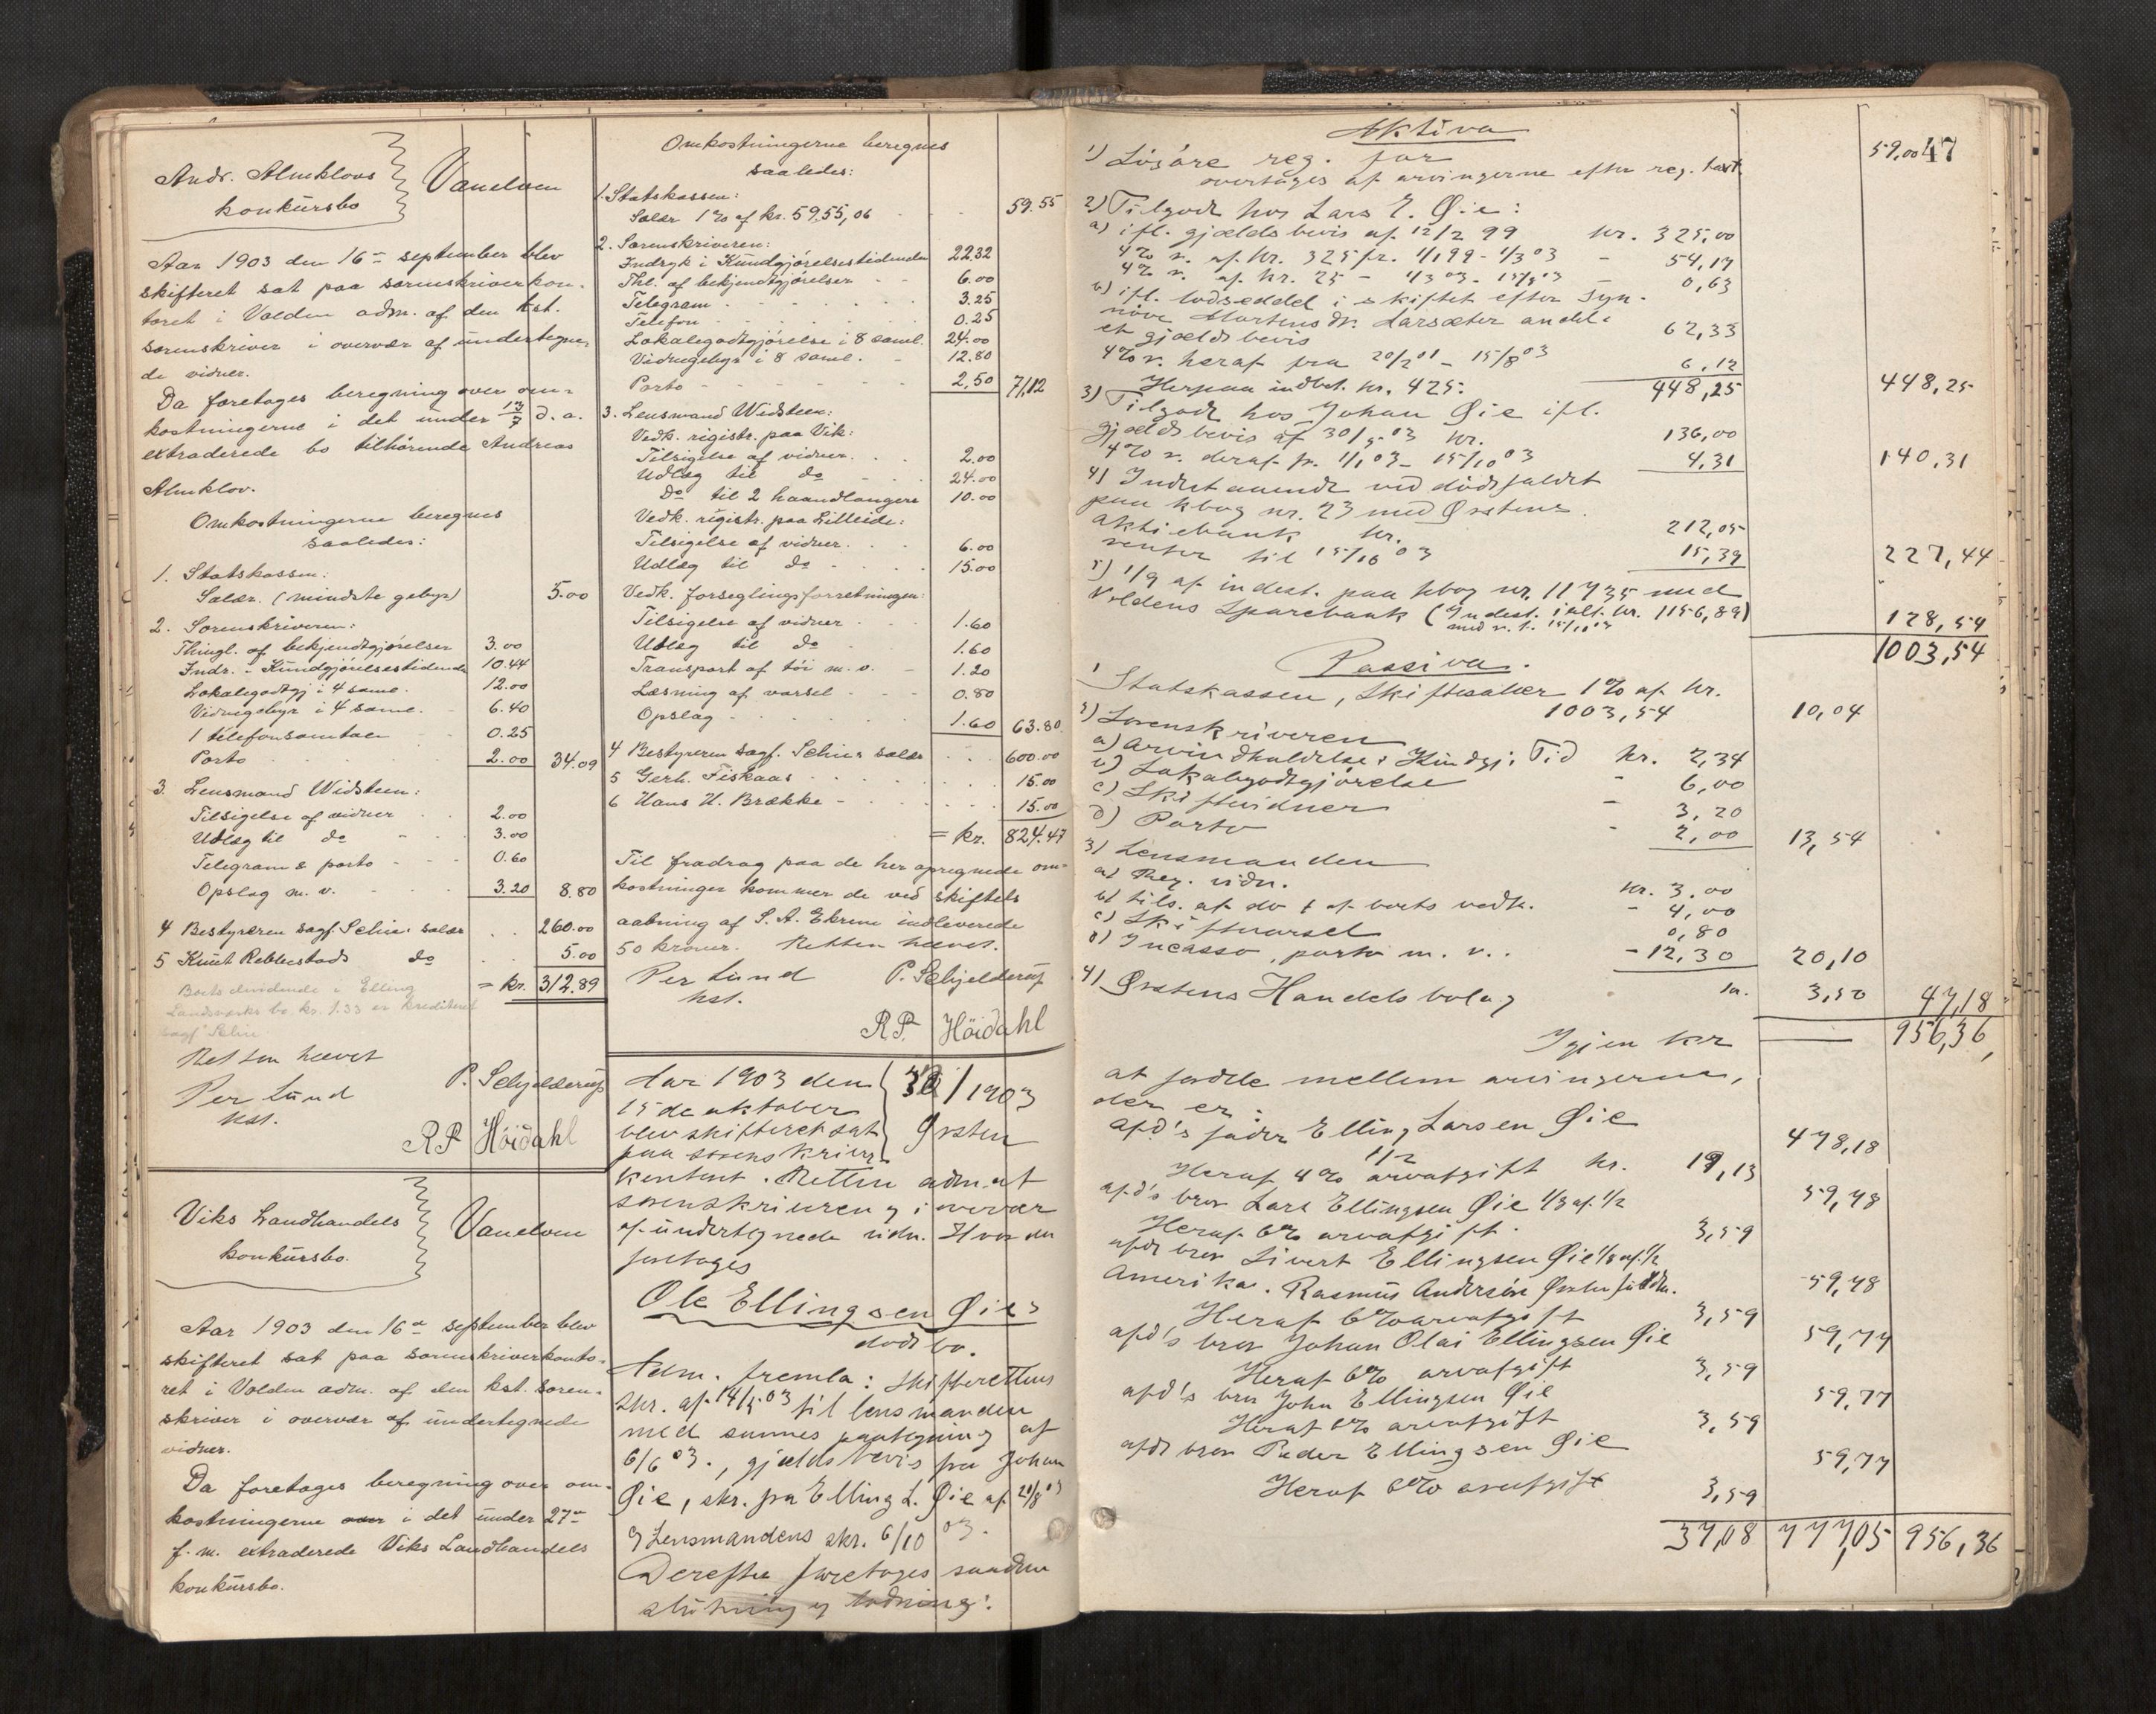 Andr. Almklovs
konkursbo
Vanelven
Aar 1903 den 16de september blev
skifteret sat paa sorenskriverkon-
toret i Volden adm. af den kst.
sorenskriver i overvær af undertegne-
de vidner.
Da foretages beregning over om-
kostningerne i det under 13/7 d. a.
extraderede bo tilhørende Andreas
Almklov.
Omkostningerne beregnes
saaledes:
1. Statskassen:
Salær. (mindste gebyr) 5.00
2. Sorenskriveren:
Thingl. af bekjendtgjørelser 3.00
Indr. i Kundgjørelsestidende 10.44
Lokalegodtgj i 4 saml. 12.00
Vidnegebyr i 4 saml. - 6.40
1 telefonsamtale 0.25
Porto 2.00 34.09
3. Lensmand Widsteen:
Tilsigelse af vidner 2.00
Udlæg til do 3.00
Telegram & porto 0.60
Opslag m. v. 3.20 8.80
4 Bestyreren sagf. Schies salær 260.00
5 Knut Rebbestads do 5.00
= kr. 312.89
Boets dividende i Elling
Landsverks bo kr. 1.33 er krediteret
sagf. Schie
Retten hævet
Per Lund
kst.
P. Schjelderup
R.P. Höidahl
Viks Landhandels
konkursbo.
Vanelven
Aar 1903 den 16de september blev
skifteret sat paa sorenskriverkonto-
ret i Volden adm. af den kst. soren-
skriver i overvær af undertegnede
vidner.
Da foretages beregning over om-
kostningerne i det under 27de
f. m. extraderede Viks Landhandels
konkursbo.
Omkostningerne beregnes
saaledes:
1. Statskassen:
Salær 1% af kr. 5955,06 - - 59.55
2. Sorenskriveren:
Indryk i Kundgjørelsestidende 22.32
Thl. af bekjendtgjørelser - - 6.00
Telegram - - - - 3.25
Telefon - - - 0.25
Lokalegodtgjørelse i 8 saml. 24.00
Vidnegebyr i 8 saml. - 12.80
Porto - - - - - 2,50 71,12
3. Lensmand Widsteen:
Vedk. registr. paa Vik:
Tilsigelse af vidner. . . 2.00
Udlæg til do 24.00
Do til 2 haandlangere 10.00
Vedk. registr. paa Lilleide:
Tilsigelse af vidner. . . 6.00
Udlæg til do - . . . 15.00
Vedk. forseglingsforretningen:
Tilsigelse af vidner - - 1.60
Udlæg til do - 1.60
Transport af tøi m. v. - 1.20
Læsning af varsel - - - 0.80
Opslag - . . . . . 1.60 63.80
4 Bestyreren sagf. Schies salær . . . 600.00
5 Gerh. Fiskaas - . . . . . 15.00
6 Hans H. Brække - . . . . . 15.00
= kr. 824.47
Til fradrag paa de her apregnede om-
kostninger kommer de ved skiftets
aabning af S. A. Ekrene indleverede
50 kroner. Retten hævet.
Per Lund
kst.
P. Schjelderup
R.P. Höidahl
Aar 1903 den
15de oktober
blev skifteret sat
paa sorenskriver
kontoret. Retten adm. af
sorenskriveren i overvær
af undertegnede vidn. Hvor der
foretages
/1903
Ørsten
Ole Ellingsen Øies
dødsbo.
Adm. fremla: Skifterettens
skr. af 14/5 03 til lensmanden
med sammes paategning af
6/6 03., gjældsbevis fra Johan
Øie, skr. fra Elling L. Øie af 20/8 03
og Lensmandens skr. 6/10 03.
Derefter foretages saadan
slutning og lodning:
47
Aktiva
1) Løsøre reg. for 59,00
overtages af arvingerne efter reg. takst.
2) Tilgode hos Lars E. Øie:
a) ifl. gjældsbevis af 12/2 99 kr. 325,00
4% r. af kr. 325 fr. 1/1 99 - 1/3 03 - 54,17
4% r. af kr. 25 - 1/3 03 - 15/8 03 - 0,63
b) ifl. lodseddel i skiftet efter Syn-
nøve Martensdr. Aarsæter andel i
et gjældsbevis 62,33
4% r. heraf fra 20/2 01 - 15/8 03 6,12
Herpaa indbet. kr. 425: 448,25 448,25
3) Tilgode hos Johan Øie ifl.
gjældsbevis af 30/5 03 kr. 136,00
4% r. deraf fr. 1/1 03 - 15/10 03 4,31 140,31
4) Indestaaende ved dødsfaldet
paa kbog nr. 23 med Ørstens
aktiebank kr. 212,05
renter til 15/10 03 15,39 227,44
5) 1/9 af indest. paa kbog nr. 11735 med
Voldens Sparebank (Indest. ialt kr. 1156,89)
med r. t. 15/10 03 128,54
1003,54
Passiva.
1 Statskassen, Skiftesalær 1% af kr.
1003,54 10,04
2) Sorenskriveren
a) arvindkaldelse i Kundgj. Tid kr. 2,34
b) Lokalegodtgjørelse - 6,00
c) Skiftevidner 3,20
d) Porto - 2,00 13,54
3) Lensmanden
a) Reg. vidn. kr. 3,00
b) tils. af do & af boets vedk. - 4,00
c) Skiftevarsel 0,80
d) Incasso, porto m. v. . - 12,30 20,10
4) Ørstens Handelsbolag 3,50 47,18
Igjen kr 956,36
at fordele mellem arvingerne,
der er:
afd's fader Elling Larsen Øie
1/2 478,18
Heraf 4% arveafgift kr. 19,13
afd's bror Lars Ellingsen Øie 1/8 af 1/2 59,78
Heraf 6% arveafgift. 3,59
afds bror Sivert Ellingsen Øie 1/8 af 1/2
Amerika. Rasmus Andersøn Ørsten fuldm. 59,78
Heraf 6% arveafgift 3,59
afd's bror Johan Olai Ellingsen Øie 59,77
Heraf 6% arveafgift 3,59
afd's bror John Ellingsen Øie 59,77
Heraf 6% arveafgift 3,59
afds bror Peder Ellingsen Øie 59,77
Heraf 6% arveafgift 3,59
37,08 777,05 956,36